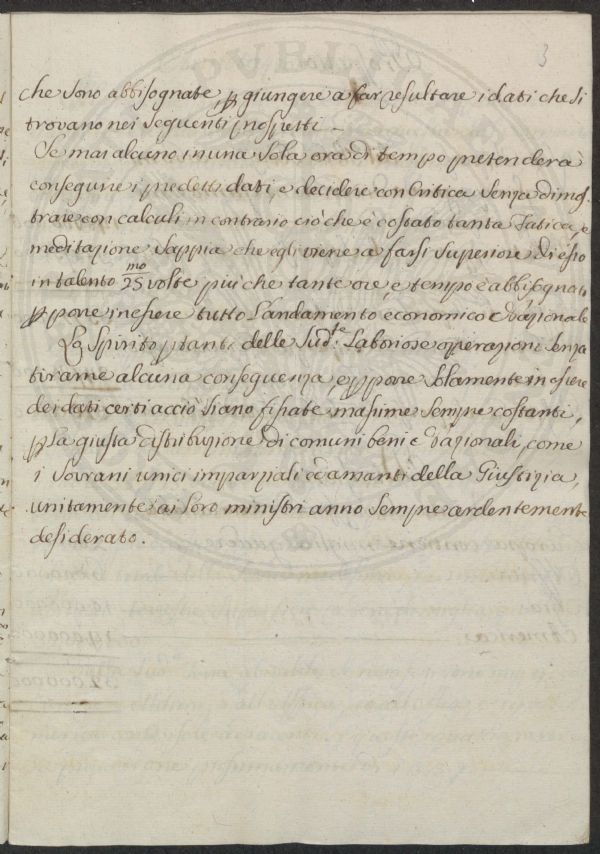 3
che sono abbisognate, ꝑ giungere a far resultare i dati che si
trovano nei seguenti prospetti -
Se mai alcuno in una sola ora di tempo pretenderà
conseguire i predetti dati, e decidere con Critica senza dimos
trare con calculi in contrario ciò che è costato tanta Fatica, e
meditazione sappia che egli viene a farsi superiore di esso
in talento 25mo volte più che tante ore, e tempo è abbisognato
ꝑ porre in essere tutto l'andamento economico e Nazionale
Lo Spirito ꝑ tanto delle Sudte. Laboriose operazioni senza
tirarne alcuna conseguenza, è ꝑ porre solamente in essere
dei dati certi acciò siano fissate massime sempre costanti,
ꝑ la giusta distribuzione di comuni beni e Nazionali, come
i Sovrani unici imparziali ed amanti della Giustizia,
unitamente ai Loro ministri anno sempre ardentemente
desiderato.